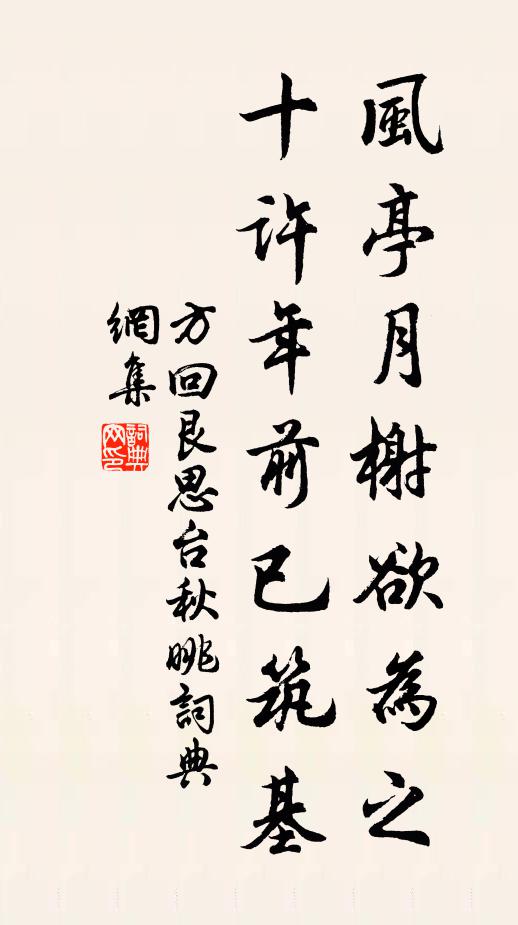 風亭月榭欲為之
十許年前已筑基
方回艮思台秋眺詞典
網集
詞典網印